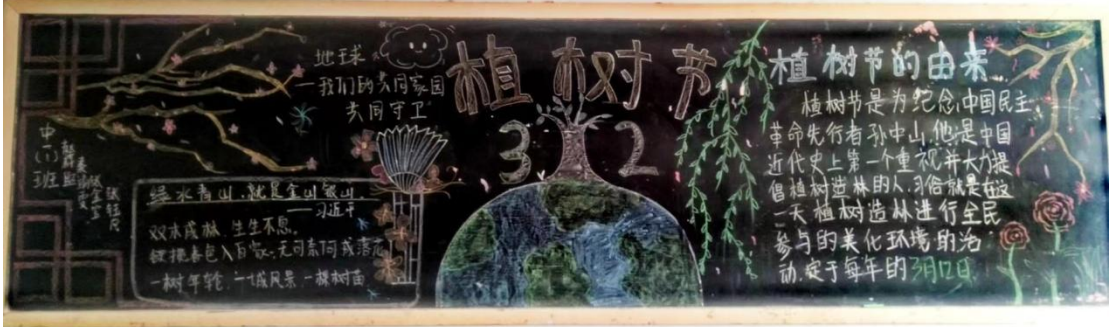 植树节
3 12
地球
—我们的共同家园
共同守卫
中(一)班
绿水青山,就是金山银山
——习近平
双木成林,生生不息。
一树年轮,一城风景,一棵树苗
植树节的由来
植树节是为纪念中国民主
革命先行者孙中山,他是中国
近代史上第一个重视并大力提
倡植树造林的人,习俗就是在这
一天植树造林进行全民
参与的美化环境的活
动,定于每年的3月12日